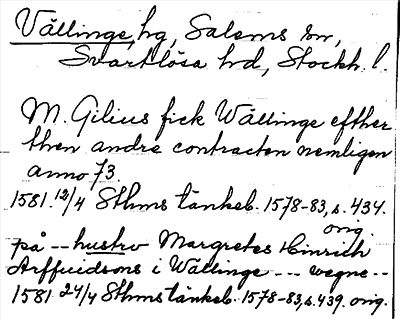 Vällinge, hg, Salems sn,
Svartlösa hd, Stockh. l.
M. Gilius fick Wällinge efther
then andre contracten nemligen
anno 73.
1581 12/4 Sthms tänkeb. 1578-83, s. 434.
orig.
på -- hustro Margretes Hinrich
Arffuidsons i Wällinge --- wegne --
1581 24/4 Sthms tänkeb. 1578-83, s. 439. orig.